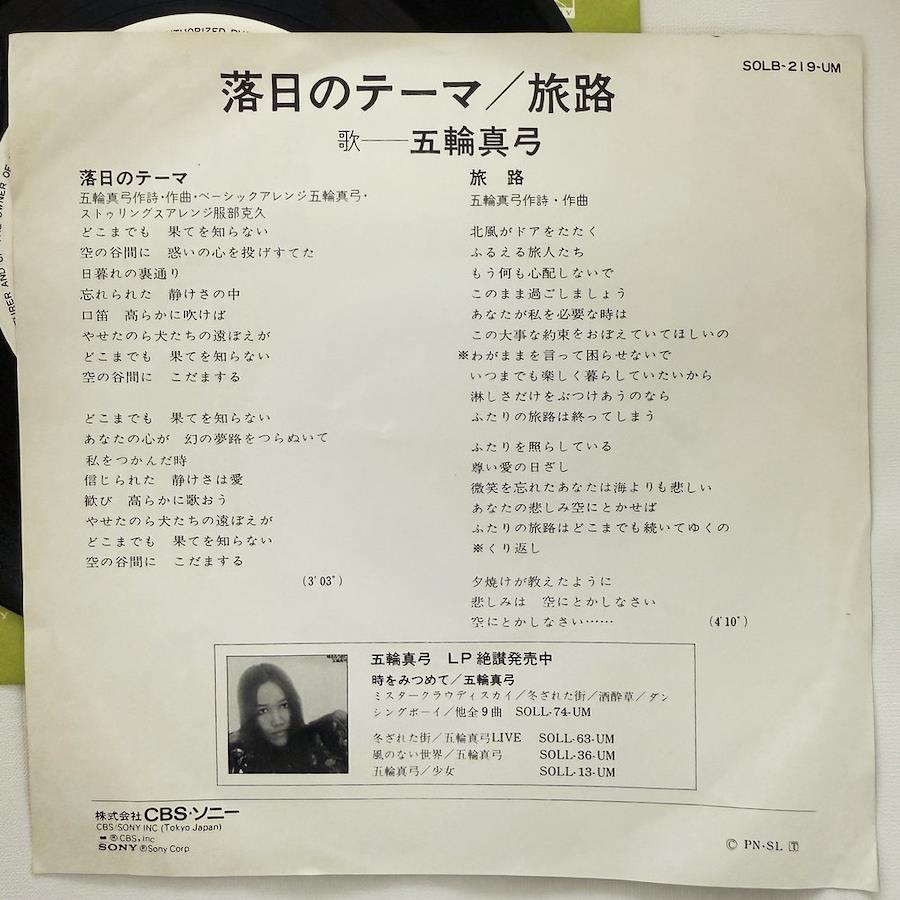 SOLB-219-UM
落日のテーマ/旅路
歌──五輪真弓
落日のテーマ
五輪真弓作詩・作曲・ベーシックアレンジ五輪真弓・
ストゥリングスアレンジ服部克久
どこまでも　果てを知らない
空の谷間に　惑いの心を投げすてた
日暮れの裏通り
忘れられた　静けさの中
口笛　高らかに吹けば
やせたのら犬たちの遠ぼえが
どこまでも　果てを知らない
空の谷間に　こだまする
どこまでも　果てを知らない
あなたの心が　幻の夢路をつらぬいて
私をつかんだ時
信じられた　静けさは愛
歓び　高らかに歌おう
やせたのら犬たちの遠ぼえが
どこまでも　果てを知らない
空の谷間に　こだまする
(3'03")
旅　路
五輪真弓作詩・作曲
北風がドアをたたく
ふるえる旅人たち
もう何も心配しないで
このまま過ごしましょう
あなたが私を必要な時は
この大事な約束をおぼえていてほしいの
※わがままを言って困らせないで
いつまでも楽しく暮らしていたいから
淋しさだけをぶつけあうのなら
ふたりの旅路は終ってしまう
ふたりを照らしている
尊い愛の日ざし
微笑を忘れたあなたは海よりも悲しい
あなたの悲しみ空にとかせば
ふたりの旅路はどこまでも続いてゆくの
※くり返し
夕焼けが教えたように
悲しみは　空にとかしなさい
空にとかしなさい……
(4'10")
五輪真弓　LP絶讃発売中
時をみつめて/五輪真弓
ミスタークラウディスカイ/冬ざれた街/酒酔草/ダン
シングボーイ/他全9曲　SOLL-74-UM
冬ざれた街/五輪真弓LIVE　SOLL-63-UM
風のない世界/五輪真弓　SOLL-36-UM
五輪真弓/少女　SOLL-13-UM
株式会社CBS・ソニー
CBS/SONY INC (Tokyo Japan)
Ⓡ CBS, inc
SONY ⓇSony Corp
Ⓒ PN・SL Ⓣ